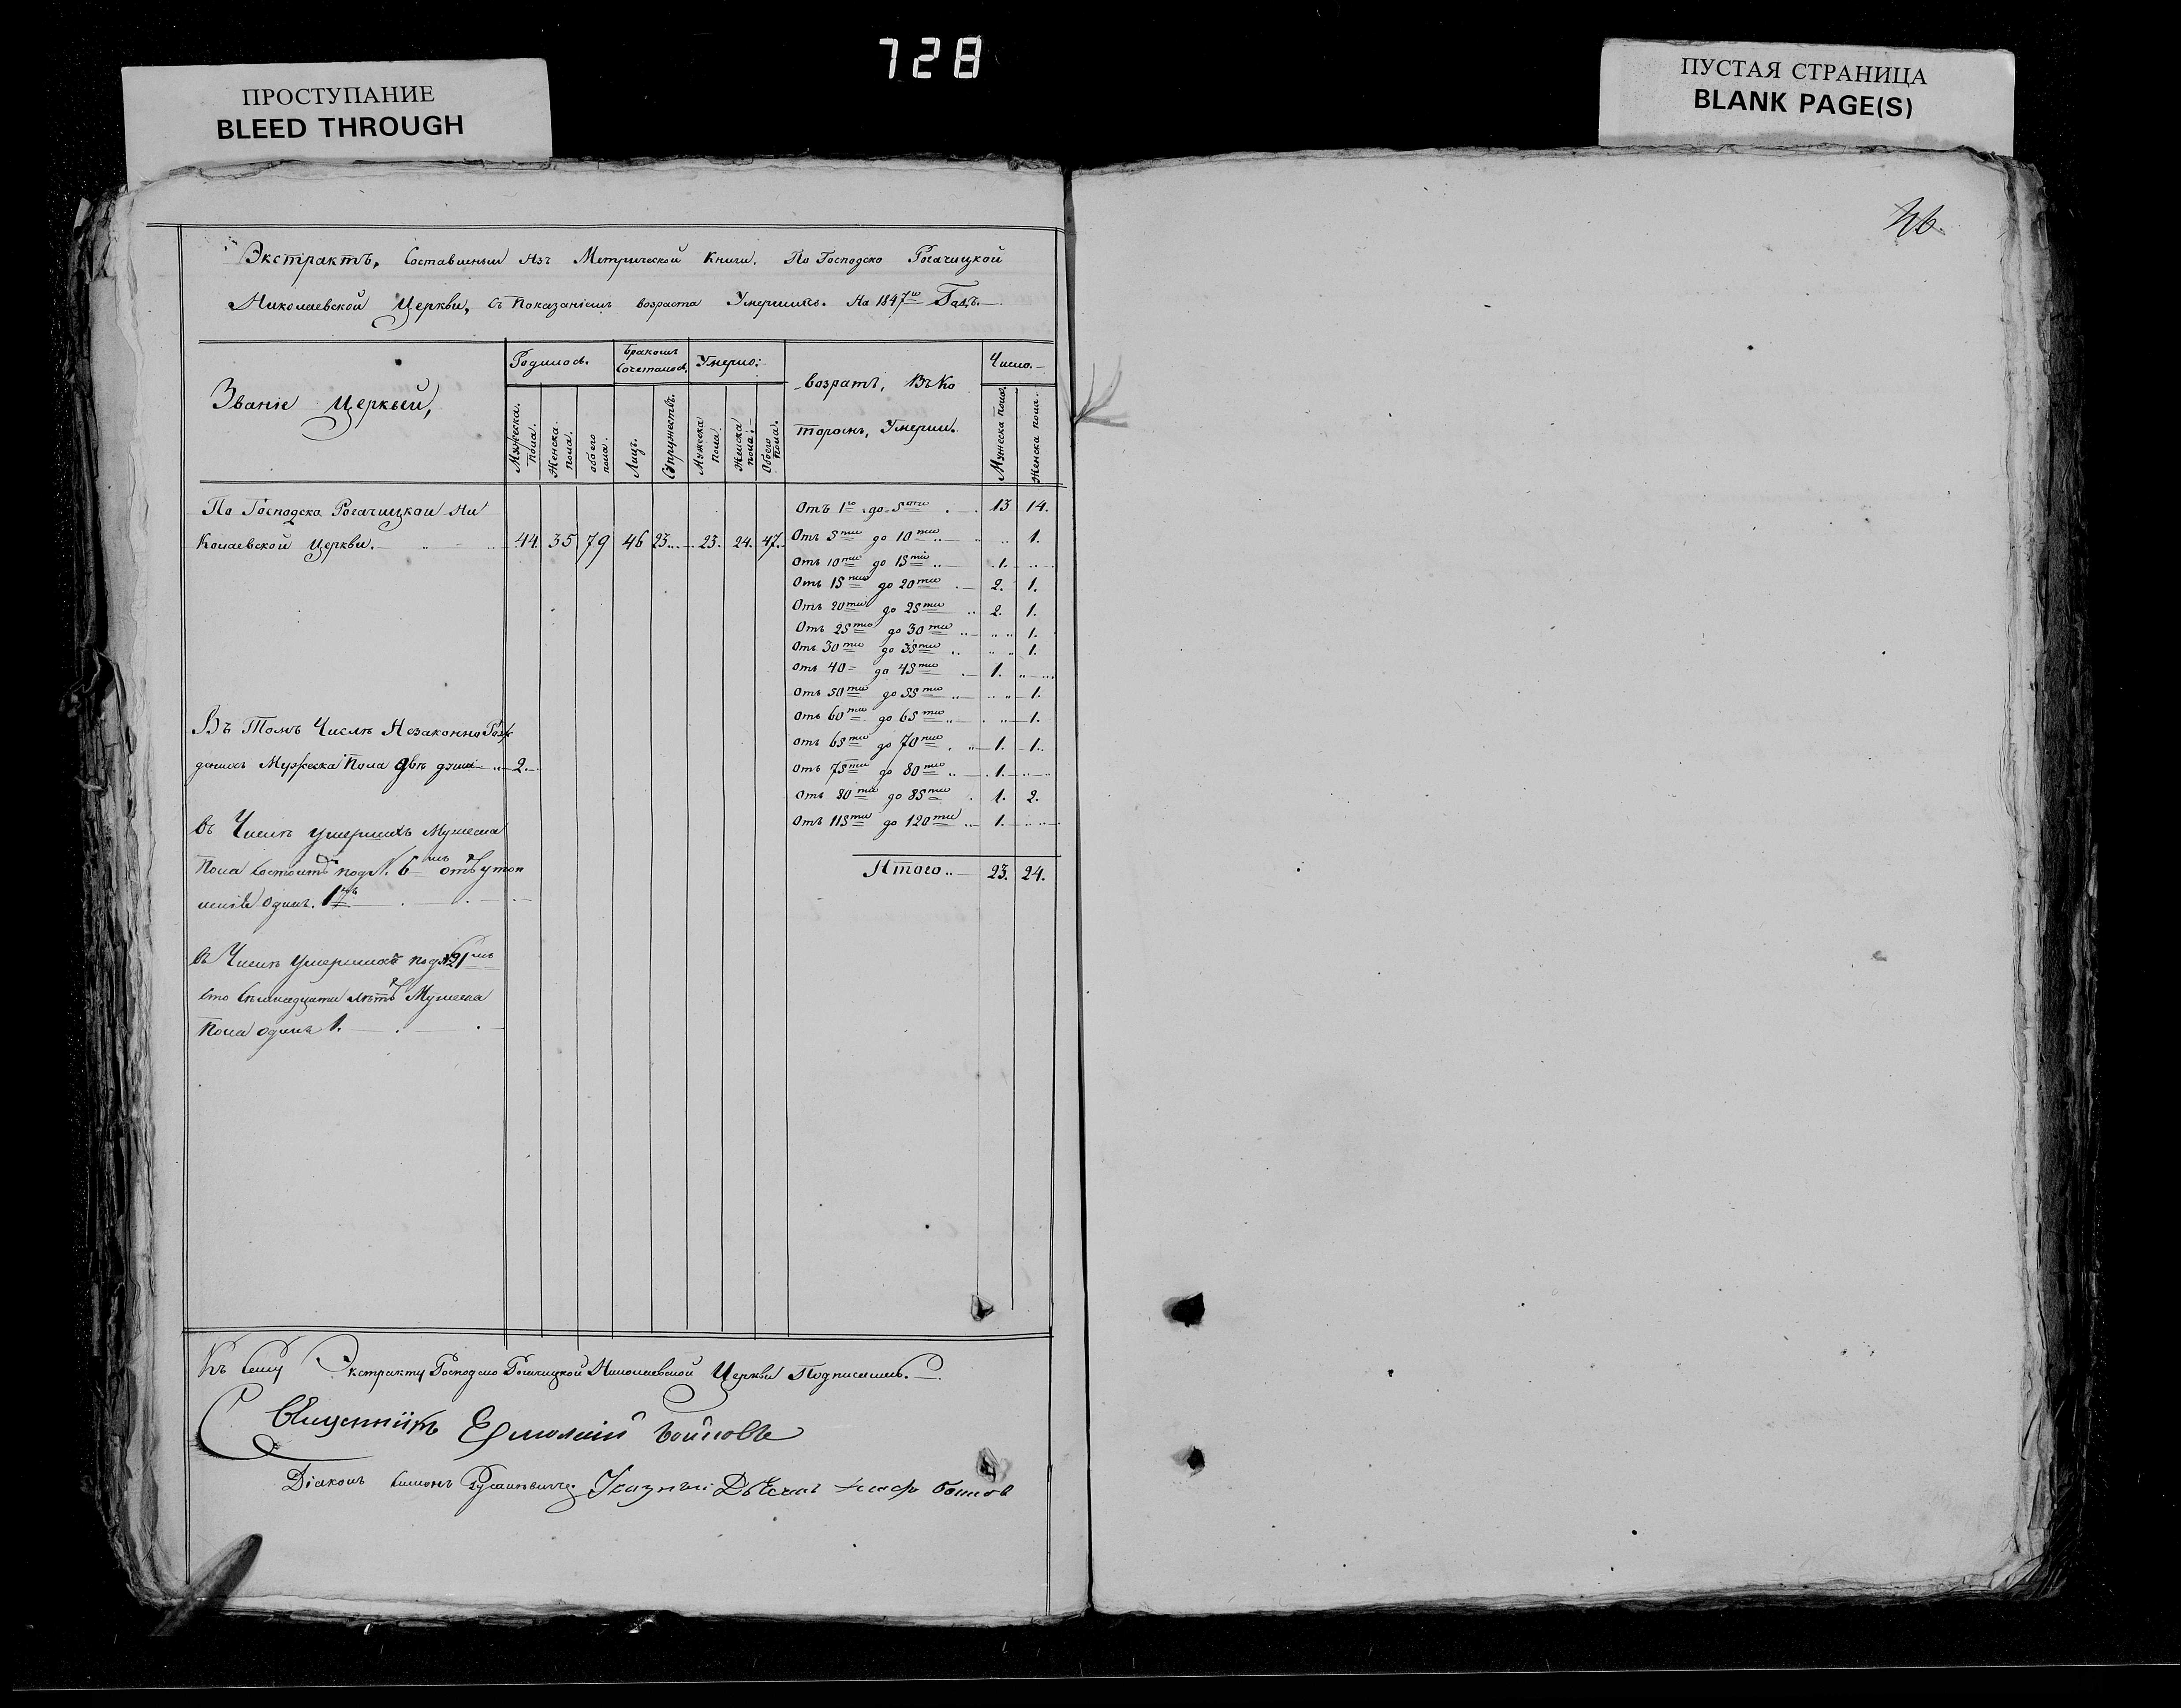 728
ПРОСТУПАНИЕ
BLEED THROUGH
ПУСТАЯ СТРАНИЦА
BLANK PAGE(S)
46.
Экстрактъ, Составленный Изъ Метрической Книги. По Господско Рогачицкой
Николаевской Церкви, съ Показаніемъ возраста Умершихъ. На 1847й Годъ.
Званіе Церквей,
Родилось.
Бракомъ Сочеталось.
Умерло:
возратъ, Въ Ко
торомъ, Умерли.
Число.
Мужеска пола.
Женска. пола.
обоего пола.
Лицъ.
Супружествъ.
Мужеска пола.
Женска пола:
Обоего пола.
Мужеска пола.
Женска пола.
По Господско Рогачицкой Ни
колаевской Церкви. 44. 35 79 46 23 23. 24. 47.
Отъ 1го до 5ти 13 14.
Отъ 5ти до 10ти 1.
Отъ 10ти до 15ти 1.
Отъ 15ти до 20ти 2. 1.
Отъ 20ти до 25ти 2. 1.
Отъ 25ти до 30ти 1.
Отъ 30ти до 35ти 1.
Отъ 40 до 45ти 1.
Отъ 50ти до 55ти 1.
Отъ 60ти до 65ти 1.
Отъ 65ти до 70ти 1. 1.
Отъ 75ти до 80ти 1.
Отъ 80ти до 85ти 1. 2.
Отъ 115ти до 120ти 1.
Итого 23. 24.
Въ Томъ Числѣ Незаконно Рож
денныхъ Мужеска Пола двѣ души 2.
Въ Числѣ умершихъ Мужеска
Пола Состоитъ подъ N. 6мъ отъ утоп
ленія одинъ. 1нъ
Въ Числѣ умершихъ подъ №21мъ
сто Семнадцати лѣтъ Мужеска
Пола одинъ 1.
Къ сему Экстракту Господско Рогачицкой Николаевской Церкви Подписались.
Священникъ Ермолай Войновъ
Діаконъ Симонъ